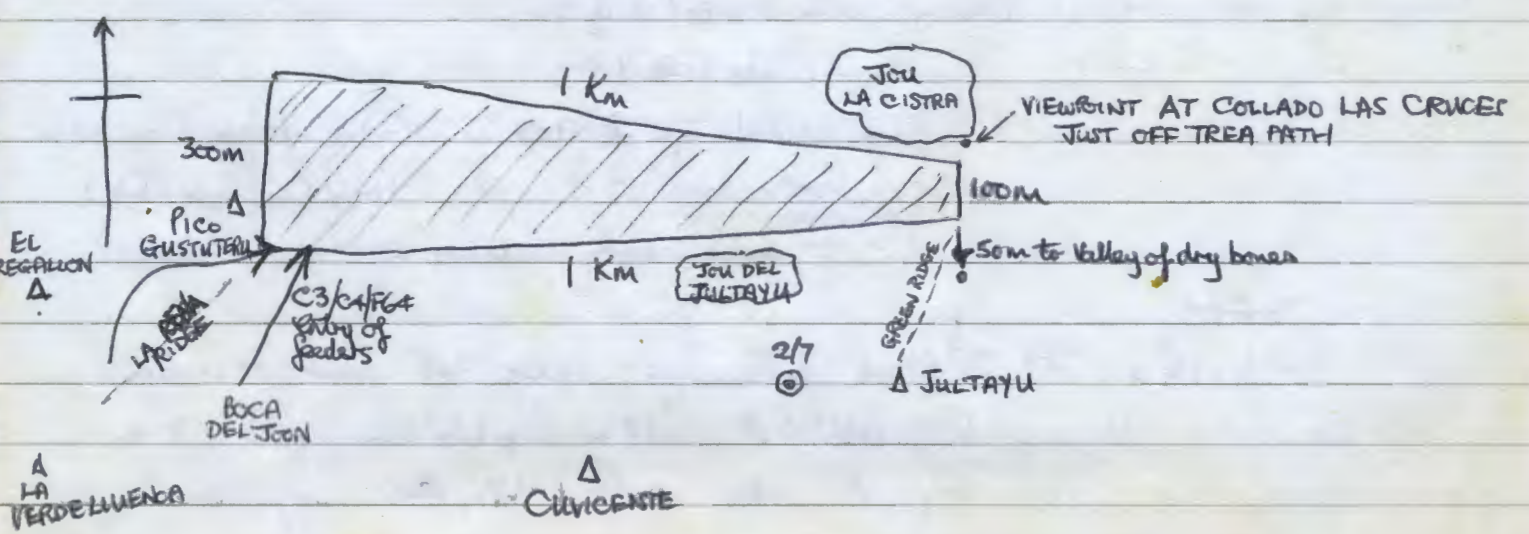 JOU
LA CISTRA
1 Km
VIEWPOINT AT COLLADO LAS CRUCES
JUST OFF TREA PATH
300m
100m
PICO
GUSTUTERU
EL
REGALLON
50m to Valley of dry bones
1 Km
JOU DEL
JULTAYU
C3/C4/F64
Entry of
feeders
LA
RIDGE
GREEN RIDGE
2/7
JULTAYU
BOCA
DEL JOON
LA
VERDELLUENGA
CUVICENTE